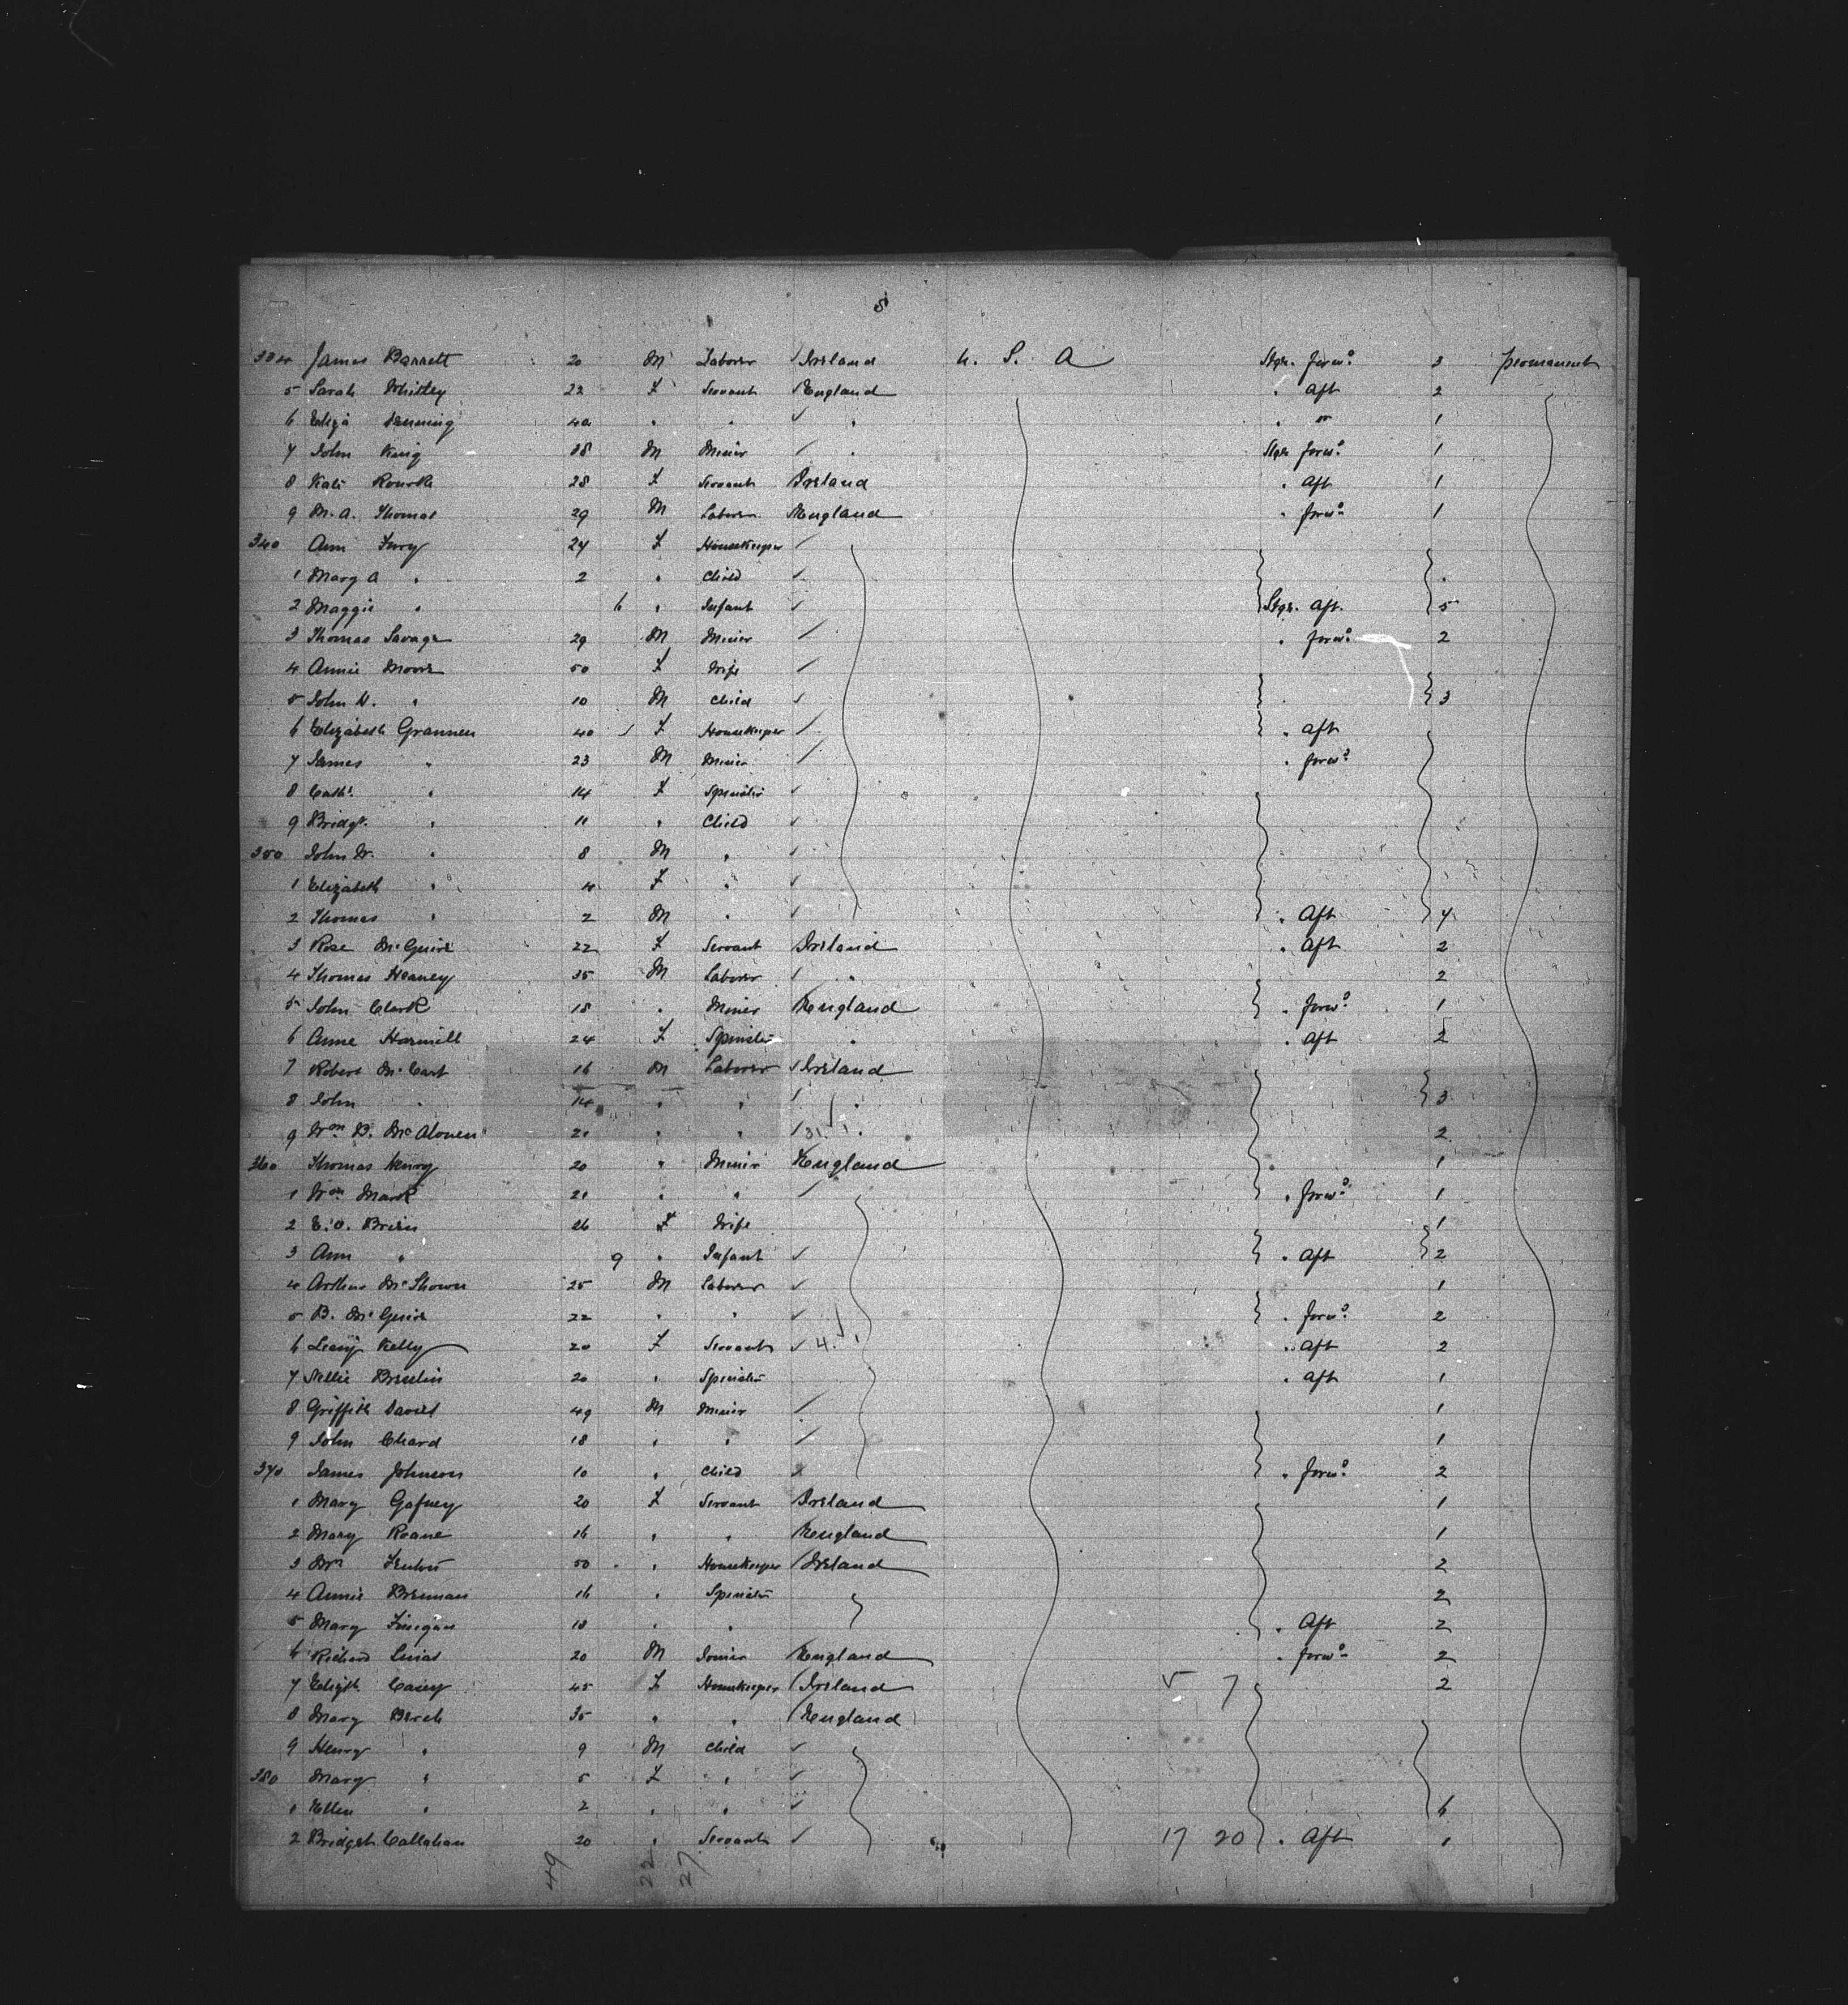 5
334 James Barrett 20 M Laborer Ireland U. S. A Stge. forwd. 3 permanent
5 Sarah Whitley 22 F Servant England " Aft 2
6 Eliza Denning 40 " " " " 1
7 John King 38 M Miner " Stge forwd. 1
8 Kate Rourke 28 F Servant Ireland " Aft 1
9 M. A. Thomas 29 M Laborer England " forwd. 1
340 Ann Fury 24 F Housekeeper
1 Mary A " 2 " Child
2 Maggie " 6 " Infant Stge. Aft. 5
3 Thomas Savage 29 M Miner " forwd. 2
4 Annie Moore 50 F Wife
5 John W. " 10 M Child 3
6 Elizabeth Grannen 40 F Housekeeper " Aft
7 James " 23 M Miner " forwd.
8 Cath. " 14 F Spinster
9 Bridgt. " 11 " Child
350 John W. " 8 M "
1 Elizabeth " 4 F "
2 Thomas " 2 M " " Aft 7
3 Rose McGuire 22 F Servant Ireland " Aft 2
4 Thomas Heaney 35 M Laborer " 2
5 John Clark 18 " Miner England " forwd. 1
6 Anne Harmill 24 F Spinster " " Aft 2
7 Robert McCart 16 M Laborer Ireland
8 John " 14 " " " 3
9 Wm B. McAlonen 21 " " " 2
360 Thomas Henry 20 " Miner England 1
1 Wm Mark 21 " " " forwd. 1
2 E. O. Brien 26 F Wife 1
3 Ann " 9 " Infant " Aft 2
4 Arthur McShown 25 M Laborer 1
5 B. McGuire 22 " " " forwd. 2
6 Kelly 20 F Servant 4 " Aft 2
7 Nellie Breslin 20 " Spinster " Aft 1
8 Griffith David 49 M Miner 1
9 John Chard 18 " " 1
370 James Johnson 10 " Child " forwd. 2
1 Mary Gafney 20 F Servant Ireland 1
2 Mary Roane 16 " " England 1
3 Mrs Fenton 50 " Housekeeper Ireland 2
4 Annie Brennan 16 " Spinster 2
5 Mary Finigan 18 " " " Aft 2
6 Richard Lucas 20 M Joiner England " forwd. 2
7 Elizth Casey 45 F Housekeeper Ireland 7 2
8 Mary Birch 35 " " England
9 Henry " 9 M Child
380 Mary " 5 F "
1 Ellen " 2 " " 6
2 Bridget Callahan 20 " Servant 17 20 " Aft 1
49 22 27